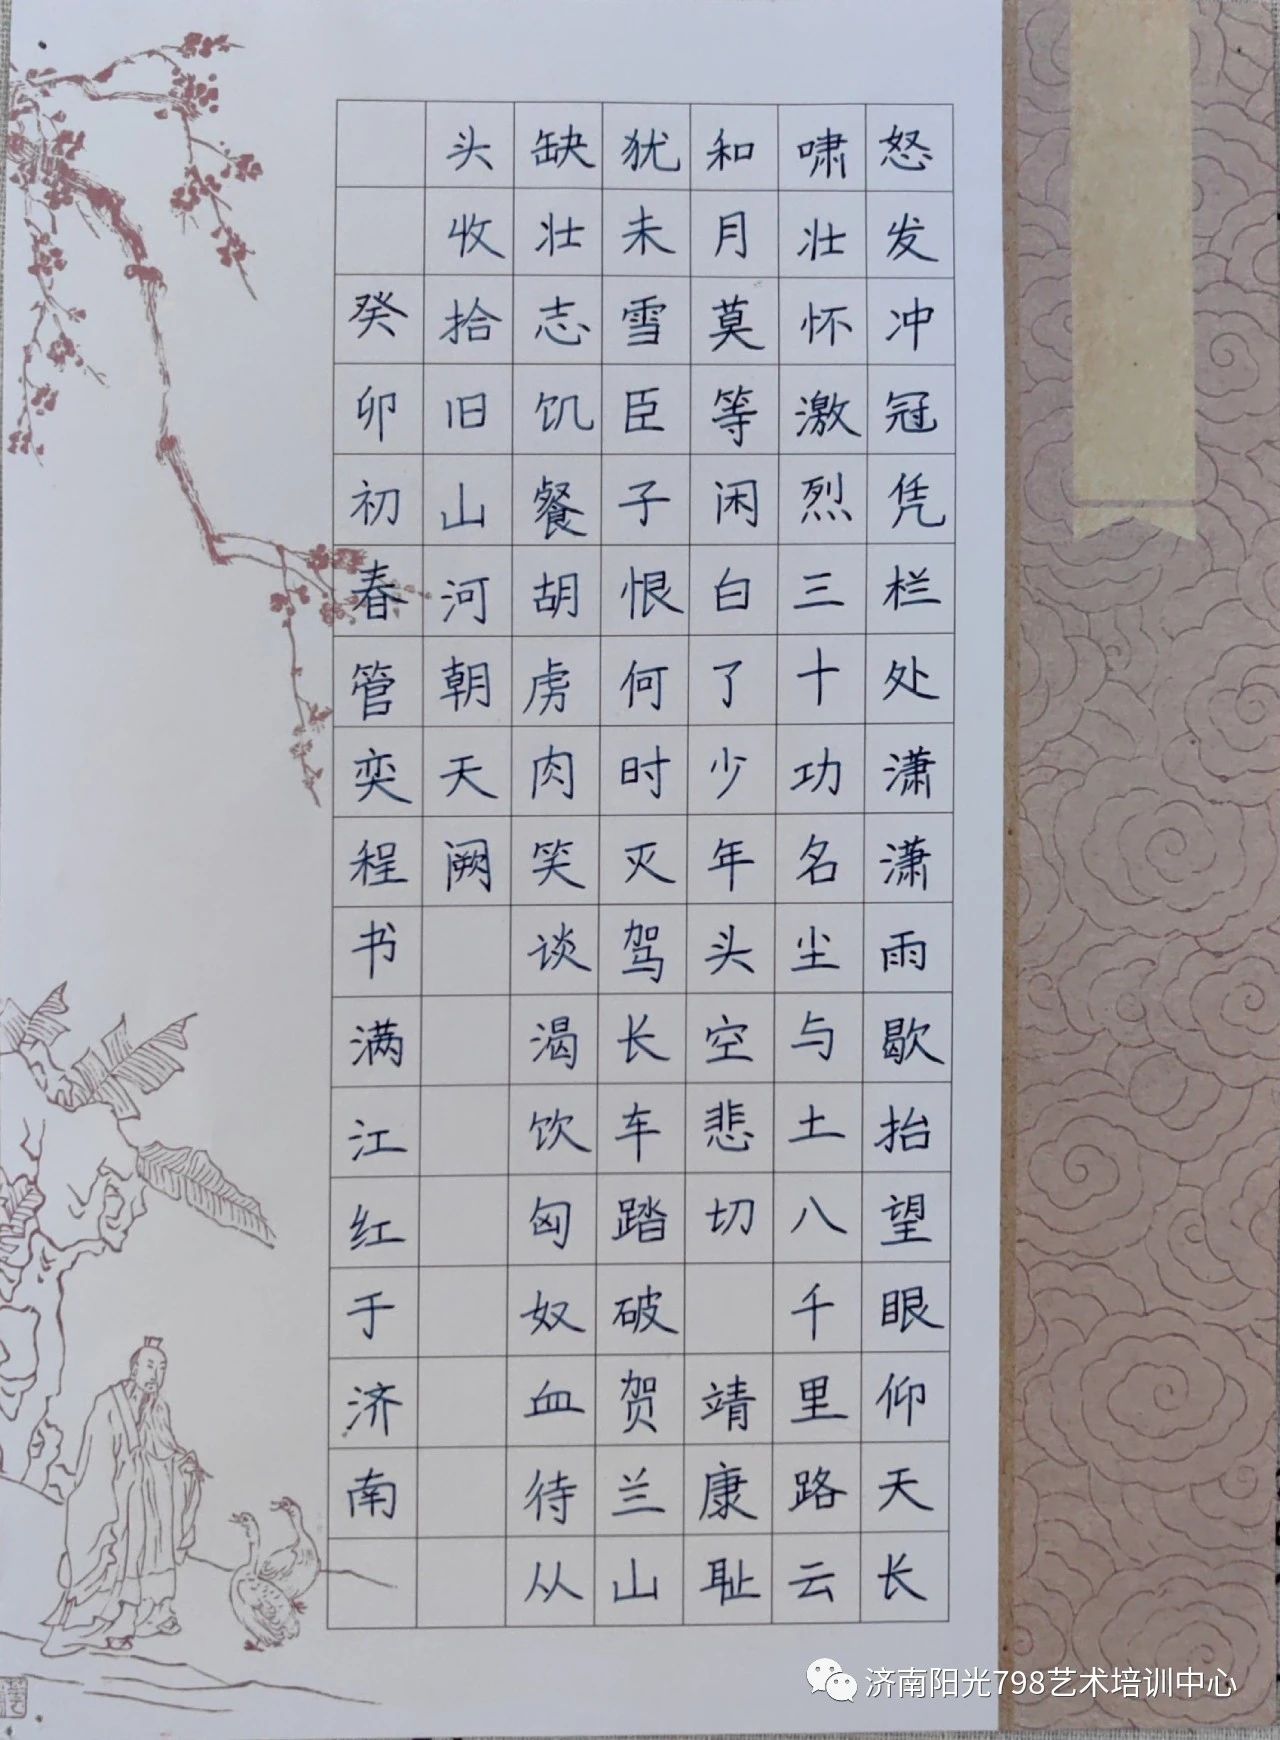 怒发冲冠凭栏处潇潇雨歇抬望眼仰天长
啸壮怀激烈三十功名尘与土八千里路云
和月莫等闲白了少年头空悲切 靖康耻
犹未雪臣子恨何时灭驾长车踏破贺兰山
缺壮志饥餐胡虏肉笑谈渴饮匈奴血待从
头收拾旧山河朝天阙
癸卯初春管奕程书满江红于济南
济南阳光798艺术培训中心